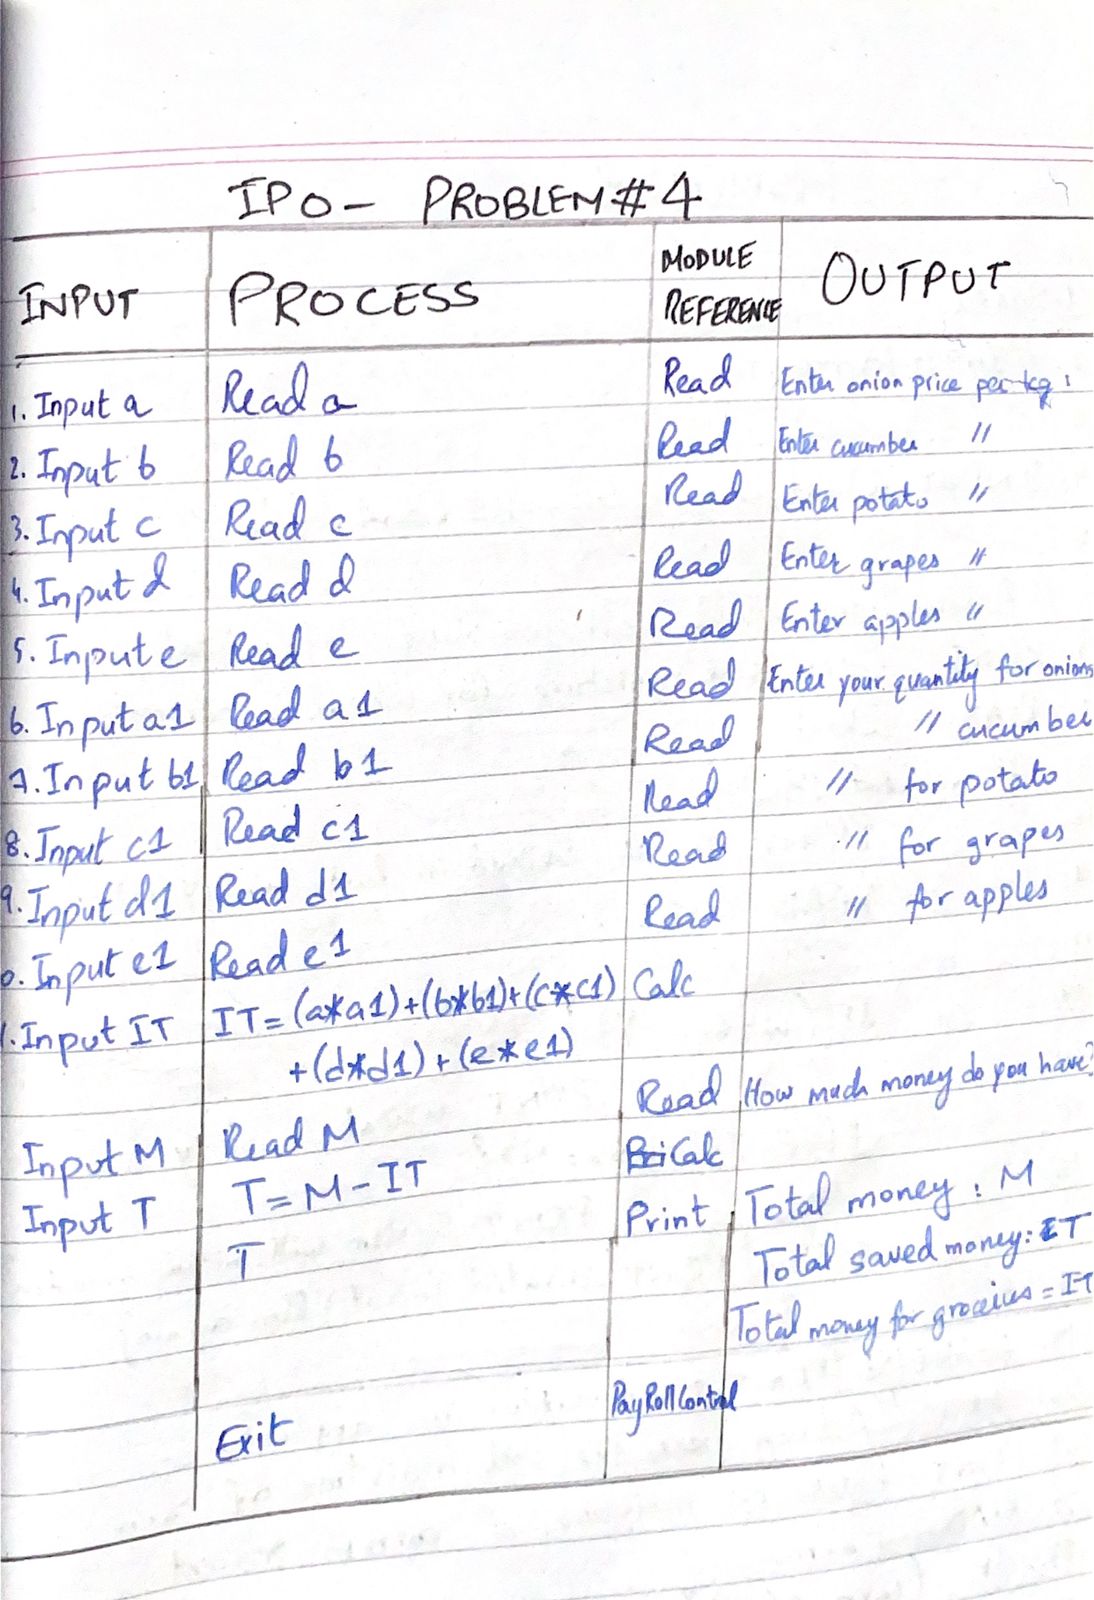 IPO - PROBLEM #4
INPUT PROCESS MODULE REFERENCE OUTPUT
1. Input a Read a Read Enter onion price per kg :
2. Input b Read b Read Enter cucumber "
3. Input c Read c Read Enter potato "
4. Input d Read d Read Enter grapes "
5. Input e Read e Read Enter apples "
6. Input a1 Read a1 Read Enter your quantity for onions
7. Input b1 Read b1 Read " cucumber
8. Input c1 Read c1 Read " for potato
9. Input d1 Read d1 Read " for grapes
0. Input e1 Read e1 Read " for apples
1. Input IT IT = (a*a1)+(b*b1)+(c*c1) Calc
+(d*d1)+(e*e1)
Input M Read M Read How much money do you have?
Input T T = M - IT Calc
T Print Total money : M
Total saved money: T
Total money for groceries = IT
Exit PayRollControl